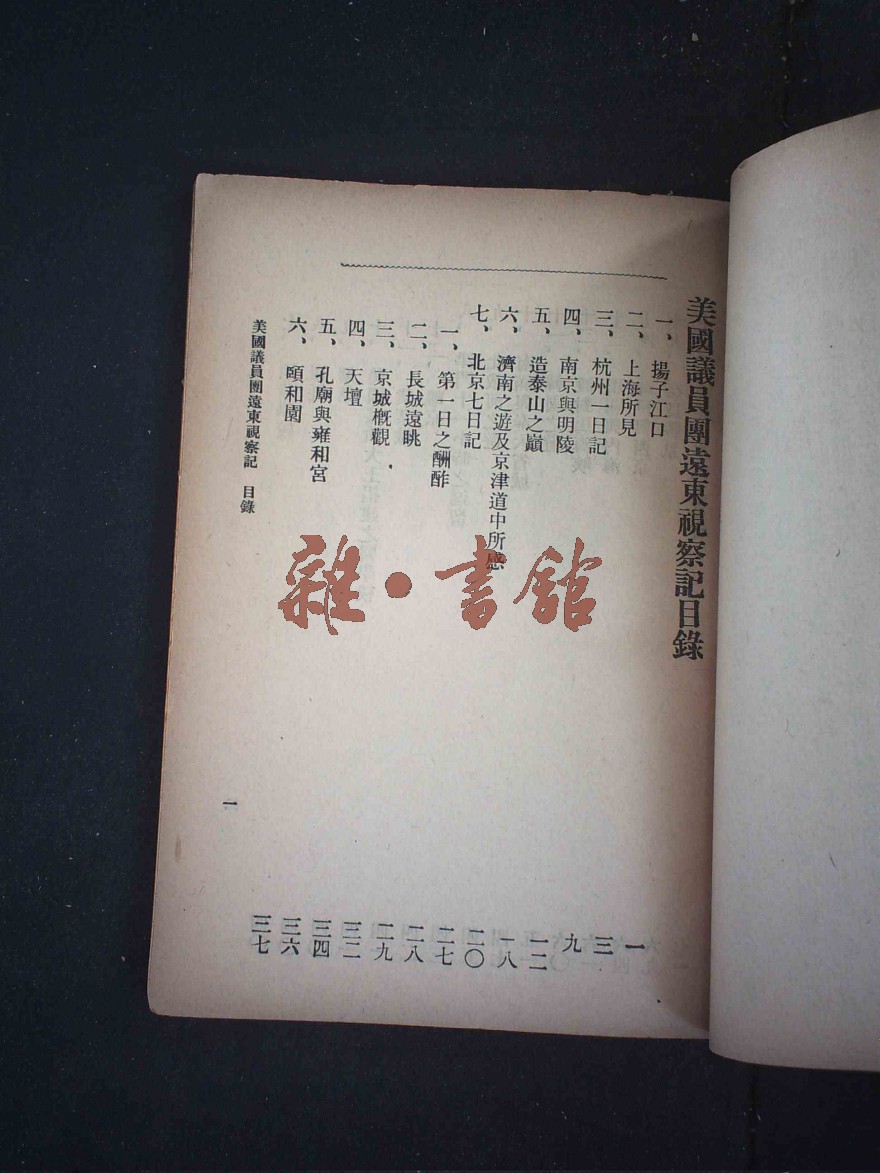 美國議員團遠東視察記目錄
一、揚子江口 一
二、上海所見 三
三、杭州一日記 九
四、南京與明陵 一二
五、造泰山之巔 一八
六、濟南之遊及京津道中所感 二〇
七、北京七日記 二七
一、第一日之酬酢 二八
二、長城遠眺 二九
三、京城概觀 三二
四、天壇 三四
五、孔廟與雍和宮 三六
六、頤和園 三七
美國議員團遠東視察記 目錄 一
雜·書館